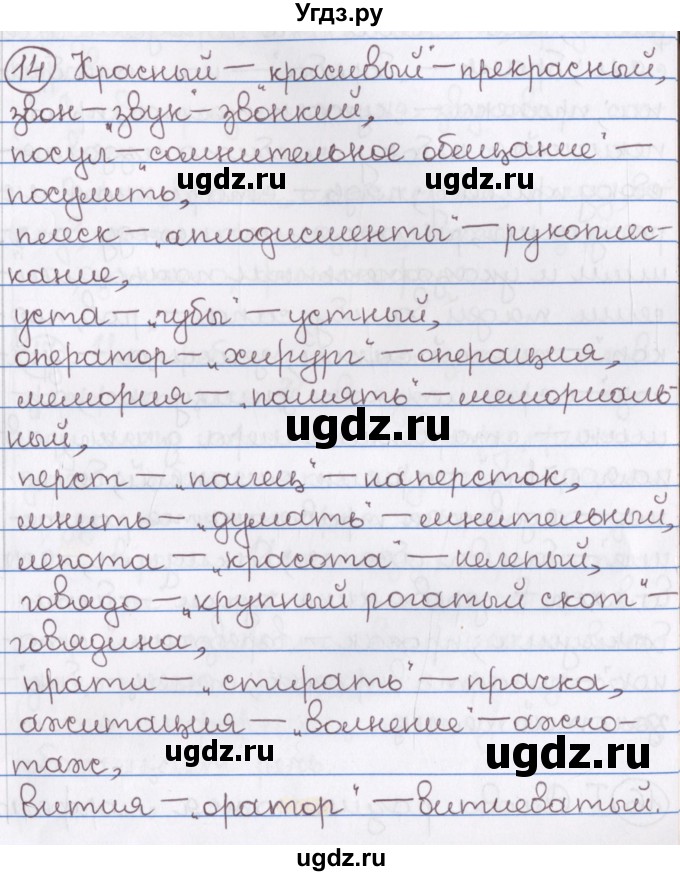 Угдз.ру
14 Красный — „красивый“ — прекрасный,
звон — „звук“ — звонкий,
посул — „сомнительное обещание“ —
ugdz.ru ugdz.ru
посулить,
плеск — „аплодисменты“ — рукоплес-
кание,
уста — „губы“ — устный,
оператор — „хирург“ — операция,
мемория — „память“ — мемориаль-
ugdz.ru
ный,
перст — „палец“ — наперсток,
мнить — „думать“ — мнительный,
лепота — „красота“ — нелепый,
говядо — „крупный рогатый скот“ —
говядина,
прати — „стирать“ — прачка,
ажитация — „волнение“ — ажио-
ugdz.ru ugdz.ru
таж,
вития — „оратор“ — витиеватый.
ugdz.ru